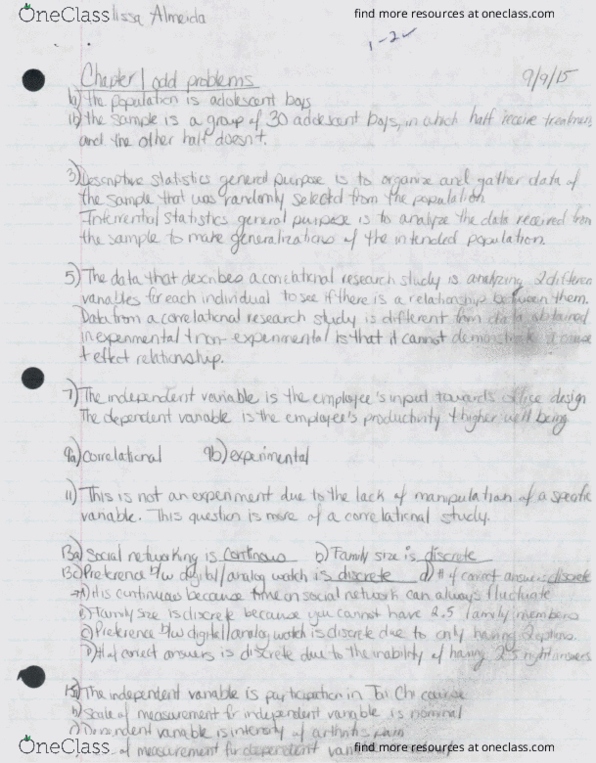 OneClass
find more resources at oneclass.com
lissa Almeida
1-2
Chapter 1 odd problems
9/9/15
1a) the population is adolescent boys
1b) the sample is a group of 30 adolescent boys, in which half receive treatmen
and the other half doesn't.
3) Descriptive statistics general purpose is to organize and gather data of
the sample that was randomly selected from the population
Statistics general purpose is to analyze the data received from
the sample to make generalizations of the intended population.
5) The data that describes a research study is analyzing 2 differen
variables for each individual to see if there is a relationship between them.
Data from a correlational research study is different from data obtained
in experimental + non-experimental is that it cannot demonstrate a cause
+ effect relationship.
7) The independent variable is the employee's input towards office design
The dependent variable is the employee's productivity + higher well being
9a) correlational 9b) experimental
11) This is not an experiment due to the lack of manipulation of a specific
variable. This question is more of a correlational study.
13a) Social networking is b) Family size is discrete
13c) Preference b/w digital/analog watch is discrete d) # of correct answers discrete
A) It is continuous because time on social network can always fluctuate
B) Family size is discrete because you cannot have 2.5 family members
C) Preference b/w digital/analog watch is discrete due to only having 2 options.
D) # of correct answers is discrete due to the inability of having 2.5 right answers
15a) The independent variable is participation in Tai Chi course
b) Scale of measurement for independent variable is nominal
c) Dependent variable is intensity of arthritis pain
of measurement for dependent
OneClass
find more resources at oneclass.com